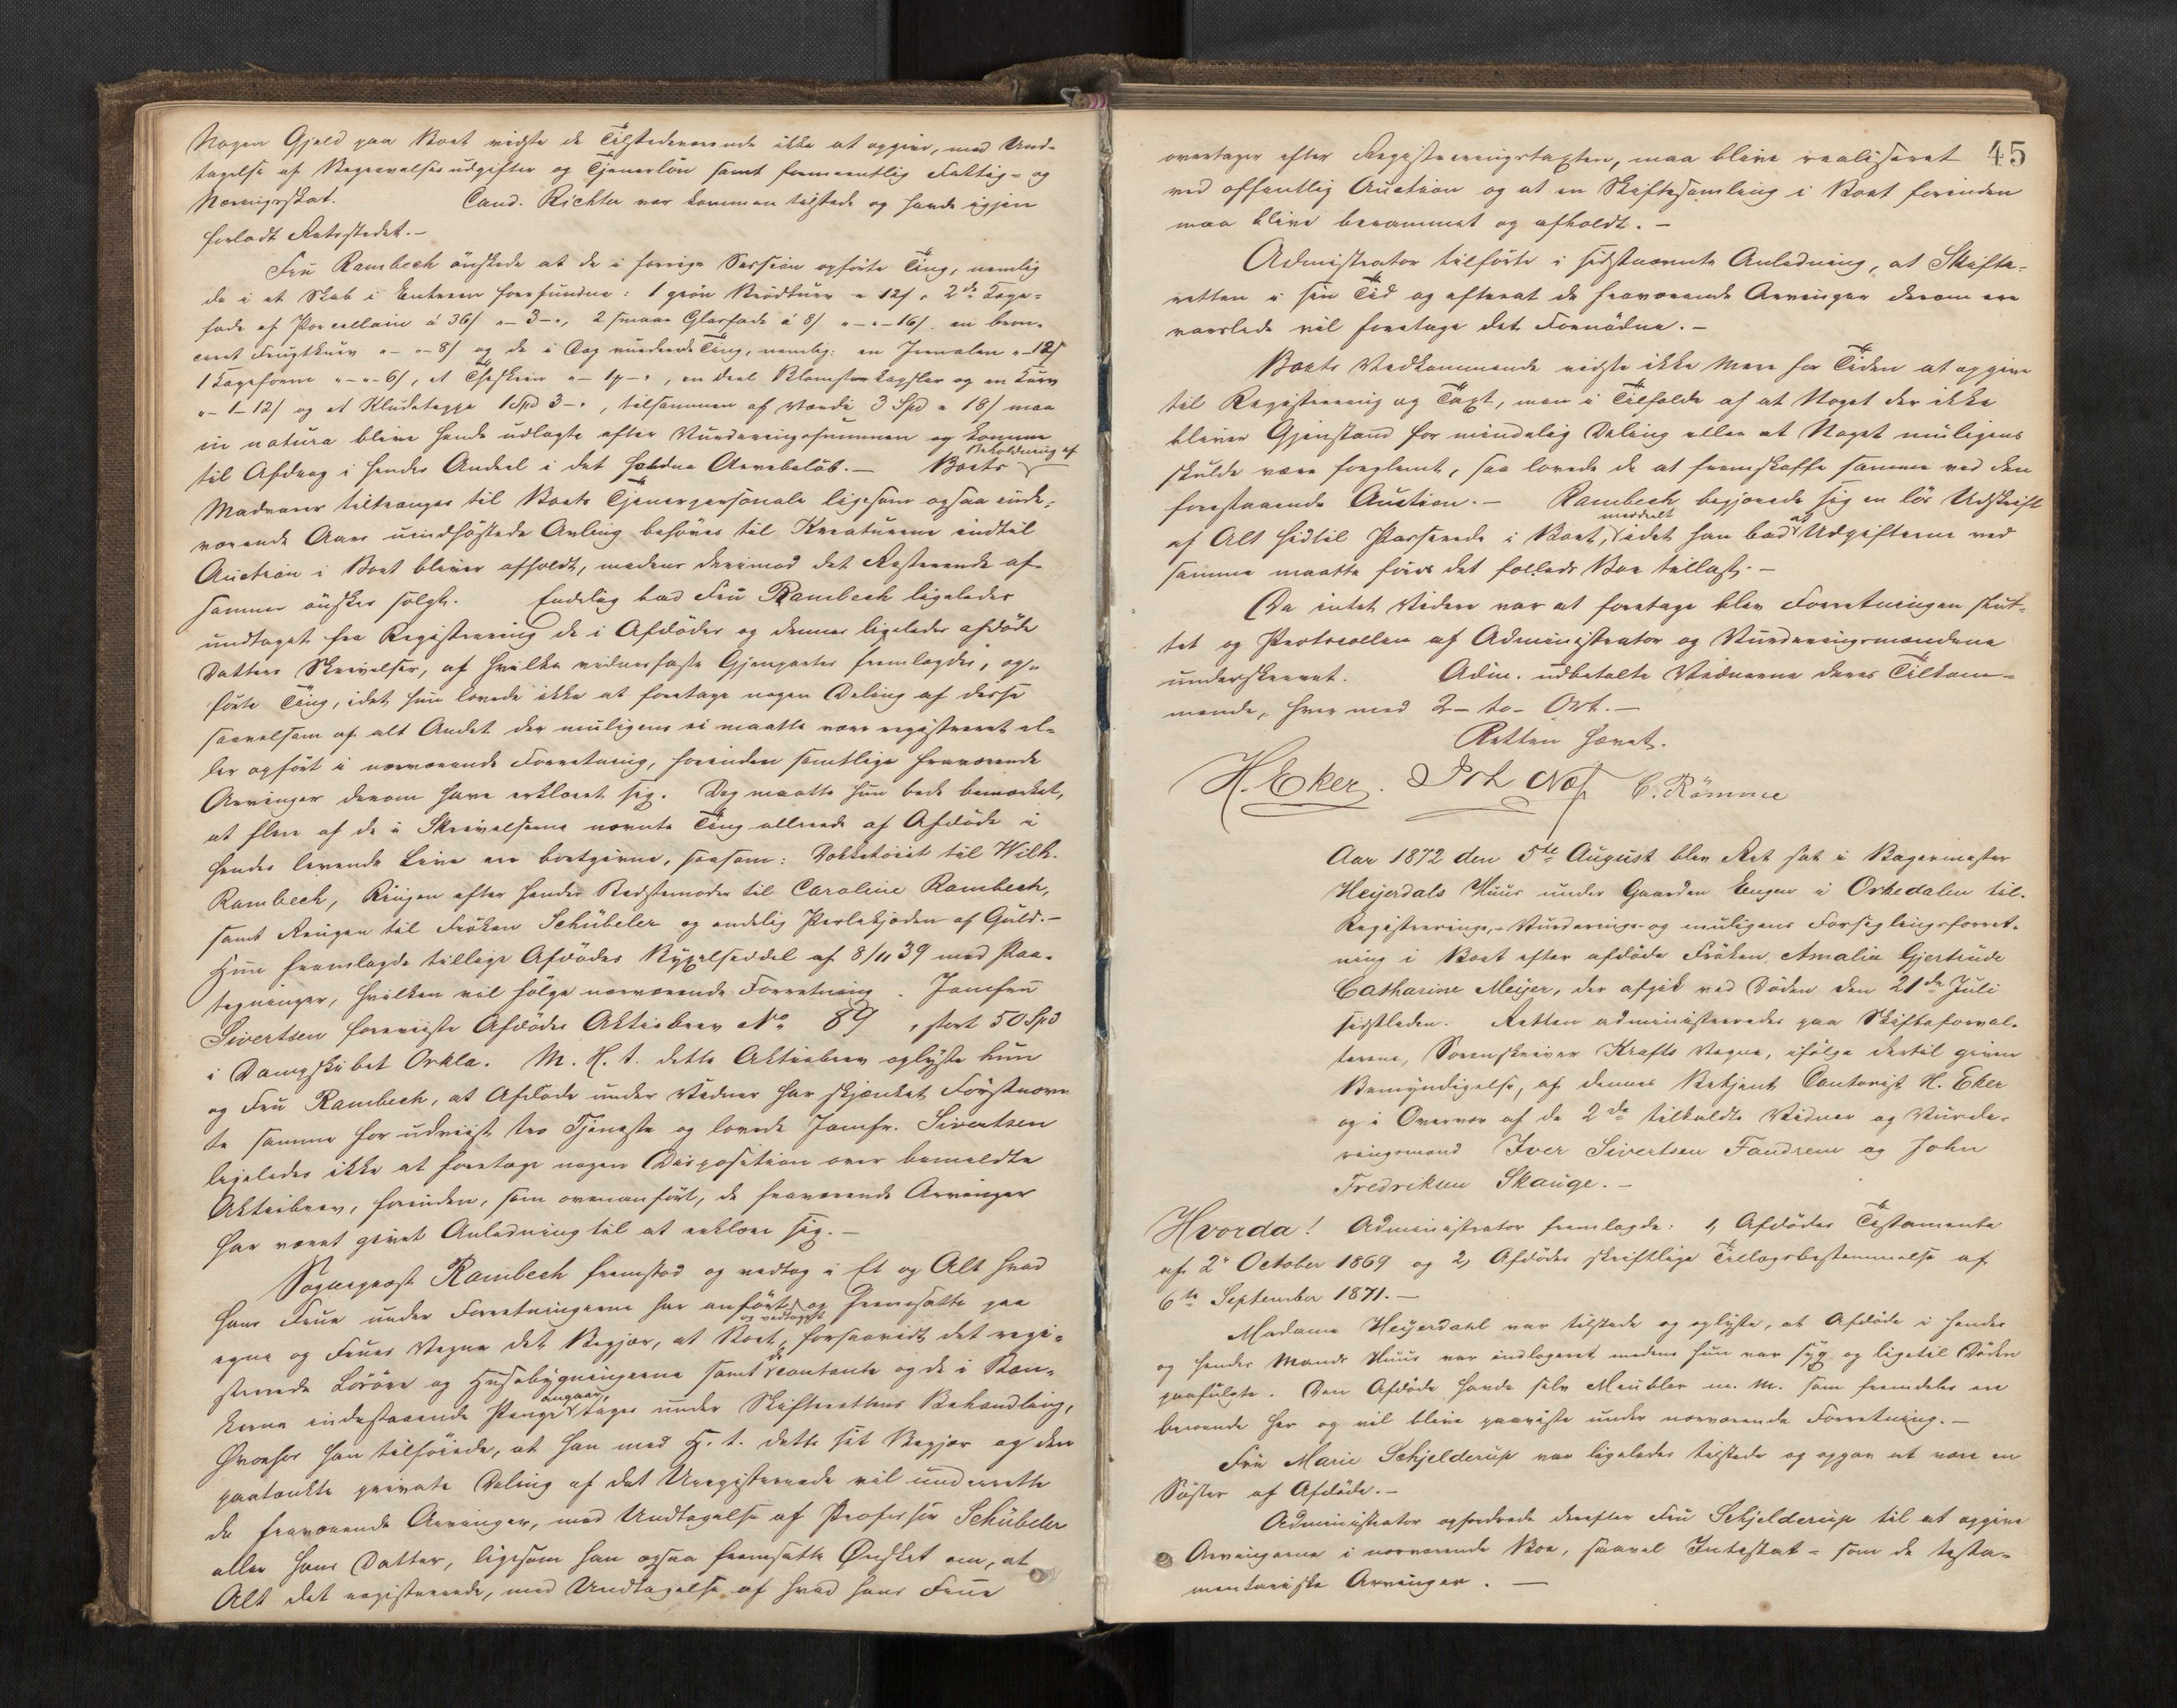 Nogen Gjeld paa Boet vidste de Tilstedeværende ikke at opgive, med Und-
tagelse af Begravelsesudgifter og Tjenerløn samt formeentlig Fattig- og
Næringsskat. Cand. Richter var kommen tilstede og havde igjen
forladt Retsstedet.-
Fru Rambech ønskede at de i forrige Session opførte Ting, nemlig
de i et Skab i Entreen forefundne: 1 grøn Brødkurv " 12/ " 2de Kage-
fade af Porcellain á 36/ "- 3-", 2 smaae Glasfade á 8/ "-"-16/. en bron-
ceret Frugtkurv "-"-8/ og de i Dag vurderede Ting, nemlig: en "-12/
1 Kageform "-"-6/, et Theskrin "- 1 -", en Deel Blomster og en Kurv
"-1-12/ og et Kludeteppe 1 Spd 3-", tilsammen af Værdi 3 Spd " 18/ maa
in natura blive hende udlagte efter Vurderingssummen og komme
til Afdrag i hendes Andeel i det Arvebeløb.- Boets Beholdning af
Madvarer tiltrænges til Boets Tjenerpersonale ligesom ogsaa inde-
værende Aars uindhøstede Avling behøves til Kreaturene indtil
Auction i Boet bliver afholdt, medens derimod det Resterende af
samme ønskes solgt. Endelig bad Fru Rambech ligeledes
undtaget fra Registrering de i Afdødes og dennes ligeledes afdøde
Datters Skrivelser, af hvilke vidnesfaste Gjenparter fremlagdes, op-
førte Ting, idet hun lovede ikke at foretage nogen Deling af disse
saavelsom af alt Andet der muligens ei maatte være registreret el-
ler opført i nærværende Forretning, forinden samtlige fraværende
Arvinger derom have erklæret sig. Dog maatte hun bede bemærket,
at flere af de i Skrivelserne nævnte Ting allerede af Afdøde i
hendes levende Live ere bortgivne, saasom: til Wilh.
Rambech, Ringen efter hendes Bedstemoder til Caroline Rambech,
samt Ringen til Frøken Schübeler og endelig Perlekjæden af Guld.-
Hun fremlagde tillige Afdødes af 8/11 39 med Paa-
tegninger, hvilken vil følge nærværende Forretning. Jomfru
Sivertsen foreviiste Afdødes Aktiebrev No 89, stort 50 Spd
i Dampskibet Orkla. M. H. t. dette Aktiebrev oplyste hun
og Fru Rambech, at Afdøde under Vidner har skjænket Førstnævn-
te samme for udviist tro Tjeneste og lovede Jomfr. Sivertsen
ligeledes ikke at foretage nogen Disposition over bemeldte
Aktiebrev, forinden, som ovenanført, de fraværende Arvinger
har været givet Anledning til at erklære sig.-
Sognepræst Rambech fremstod og vedtog i Et og Alt hvad
hans Frue under Forretningerne har anført og fremsatte paa
egne og Frues Vegne det Begjær, at Boet, og vedtaget forsaavidt det regi-
strerede Løsøre og Husebygningerne samt de contante og de i Ban-
kerne indestaaende Penge angaaer, tages under Skifterettens Behandling,
hvorhos han tilføiede, at han med H. t. dette sit Begjær og den
paatænkte private Deling af det Uregistrerede vil underrette
de fraværende Arvinger, med Undtagelse af Professor Schübeler
eller hans Datter, ligesom han ogsaa fremsatte Ønsket om, at
Alt det registrerede, med Undtagelse af hvad hans Frue
45
overtager efter Registreringstaxten, maa blive realiseret
ved offentlig Auction og at en Skiftesamling i Boet forinden
maa blive berammet og afholdt.-
Administrator tilførte i sidstnævnte Anledning, at Skifte-
retten i sin Tid og efterat de fraværende Arvinger derom ere
varslede vil foretage det Fornødne.-
Boets Vedkommende vidste ikke Mere for Tiden at opgive
til Registrering og Taxt, men i Tilfælde af at Noget der ikke
bliver Gjenstand for mindelig Deling eller at Noget muligens
skulde være forglemt, saa lovede de at fremskaffe samme ved den
forestaaende Auction.- Rambech begjærede sig en løs Udskrift
af Alt hidtil Passerede i Boet, meddeelt idet han bad at Udgifterne ved
samme maatte det fælleds Boe tillagt.-
Da intet Videre var at foretage blev Forretningen slut-
tet og Protocollen af Administrator og Vurderingsmændene
underskrevet. Adm. udbetalte Vidnerne deres Tilkom-
mende, hver med 2- to- Ort.-
Retten hævet.
H. Eker. Joh Næss C. Rømme
Aar 1872 den 5te August blev Ret sat i Bagermester
Heyerdals Huus under Gaarden Engen i Orkedalen til
Registrerings-, Vurderings- og muligens Forseglingsforret-
ning i Boet efter afdøde Frøken Amalia Gjertrude
Catharine Meyer, der afgik ved Døden den 21de Juli
sidstleden. Retten administreredes paa Skifteforval-
terens, Sorenskriver Krafts Vegne, ifølge dertil given
Bemyndigelse, af dennes Betjent Contorist H. Eker
og i Overvær af de 2de tilkaldte Vidner og Vurde-
ringsmænd Iver Sivertsen Fandrem og John
Fredriksen Skauge.-
Hvorda! Administrator fremlagde: 1, Afdødes Testamente
af 2. October 1869 og 2, Afdødes skriftlige Tillægsbestemmelse af
6te September 1871.-
Madame Heyerdahl var tilstede og oplyste, at Afdøde i hendes
og hendes Mands Huus var indlogeret medens hun var syg og ligetil Døden
paafulgte. Den Afdøde havde selv Meubler m. M. som fremdeles ere
beroende her og vil blive paaviste under nærværende Forretning.-
Fru Marie Schjelderup var ligeledes tilstede og opgav at være en
Søster af Afdøde.-
Administrator opfordrede derefter Fru Schjelderup til at opgive
Arvingerne i nærværende Boe, saavel Intestat- som de testa-
mentariske Arvinger.-